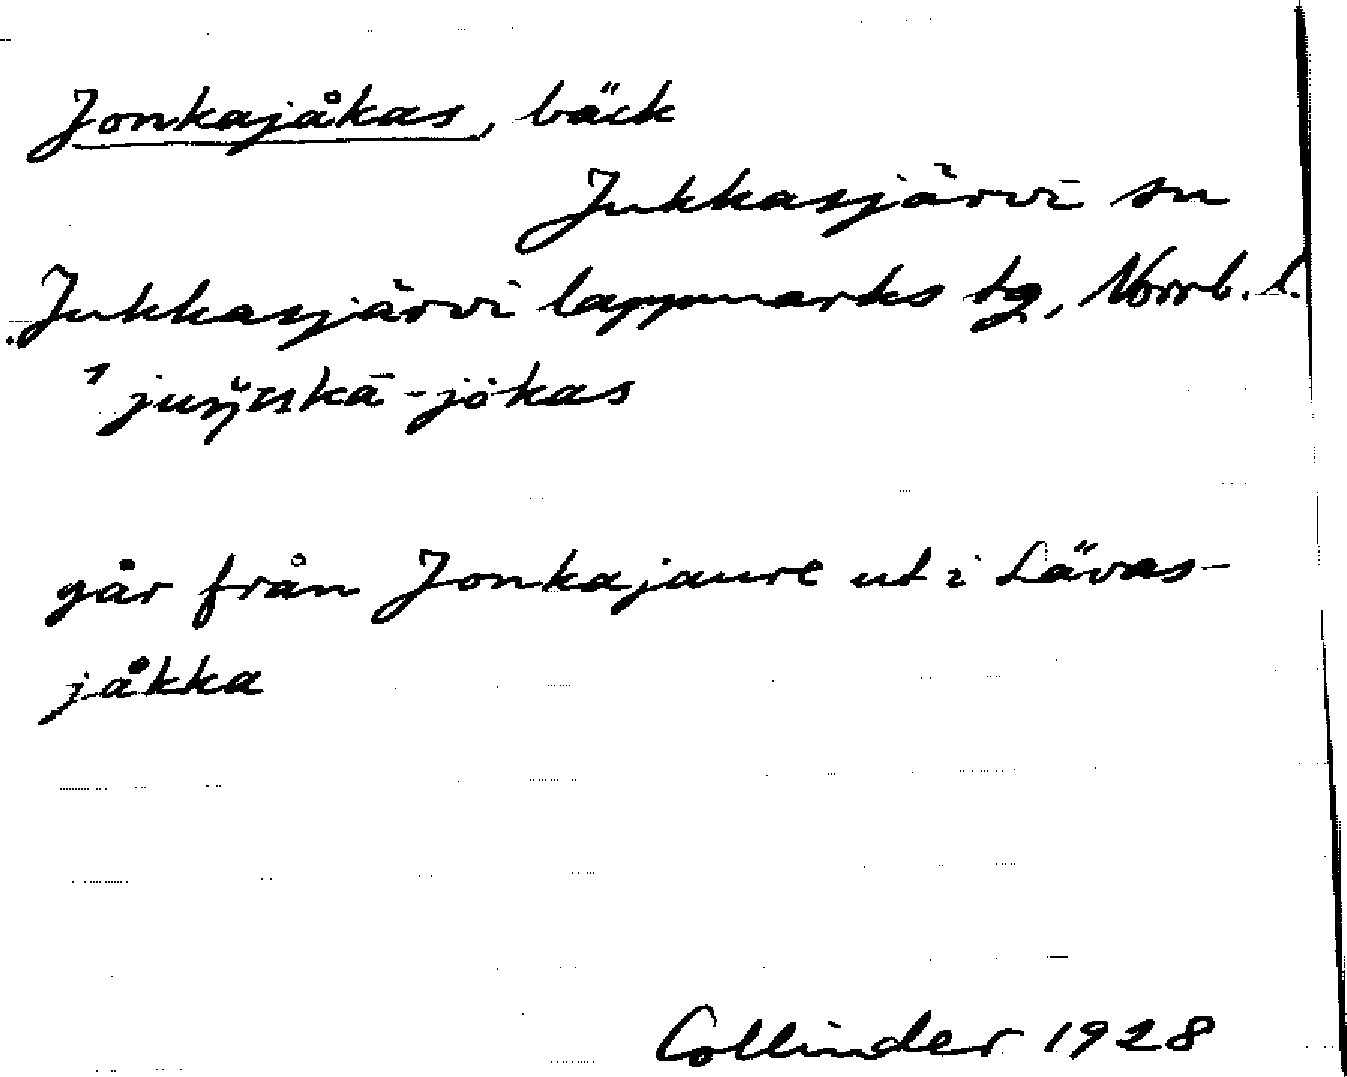 Jonkajåkas, bäck
Jukkasjärvi sn
Jukkasjärvi lappmarks tg, Norrb. l.
-jokas
går från Jonkajaure ut i Lävas-
jåkka
Collinder 1928